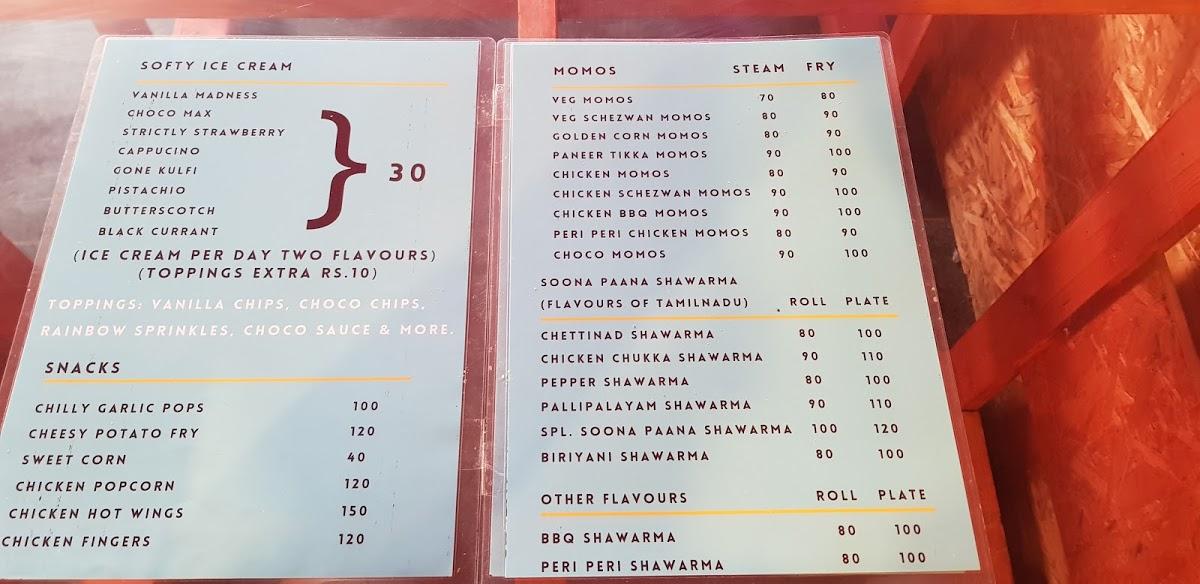 SOFTY ICE CREAM
VANILLA MADNESS
CHOCO MAX
STRICTLY STRAWBERRY
CAPPUCINO
GONE KULFI
PISTACHIO
BUTTERSCOTCH
BLACK CURRANT
} 30
(ICE CREAM PER DAY TWO FLAVOURS)
(TOPPINGS EXTRA RS.10)
TOPPINGS: VANILLA CHIPS, CHOCO CHIPS,
RAINBOW SPRINKLES, CHOCO SAUCE & MORE.
SNACKS
CHILLY GARLIC POPS 100
CHEESY POTATO FRY 120
SWEET CORN 40
CHICKEN POPCORN 120
CHICKEN HOT WINGS 150
CHICKEN FINGERS 120
MOMOS STEAM FRY
VEG MOMOS 70 80
VEG SCHEZWAN MOMOS 80 90
GOLDEN CORN MOMOS 80 90
PANEER TIKKA MOMOS 90 100
CHICKEN MOMOS 80 90
CHICKEN SCHEZWAN MOMOS 90 100
CHICKEN BBQ MOMOS 90 100
PERI PERI CHICKEN MOMOS 80 90
CHOCO MOMOS 90 100
SOONA PAANA SHAWARMA
(FLAVOURS OF TAMILNADU) ROLL PLATE
CHETTINAD SHAWARMA 80 100
CHICKEN CHUKKA SHAWARMA 90 110
PEPPER SHAWARMA 80 100
PALLIPALAYAM SHAWARMA 90 110
SPL. SOONA PAANA SHAWARMA 100 120
BIRIYANI SHAWARMA 80 100
OTHER FLAVOURS ROLL PLATE
BBQ SHAWARMA 80 100
PERI PERI SHAWARMA 80 100